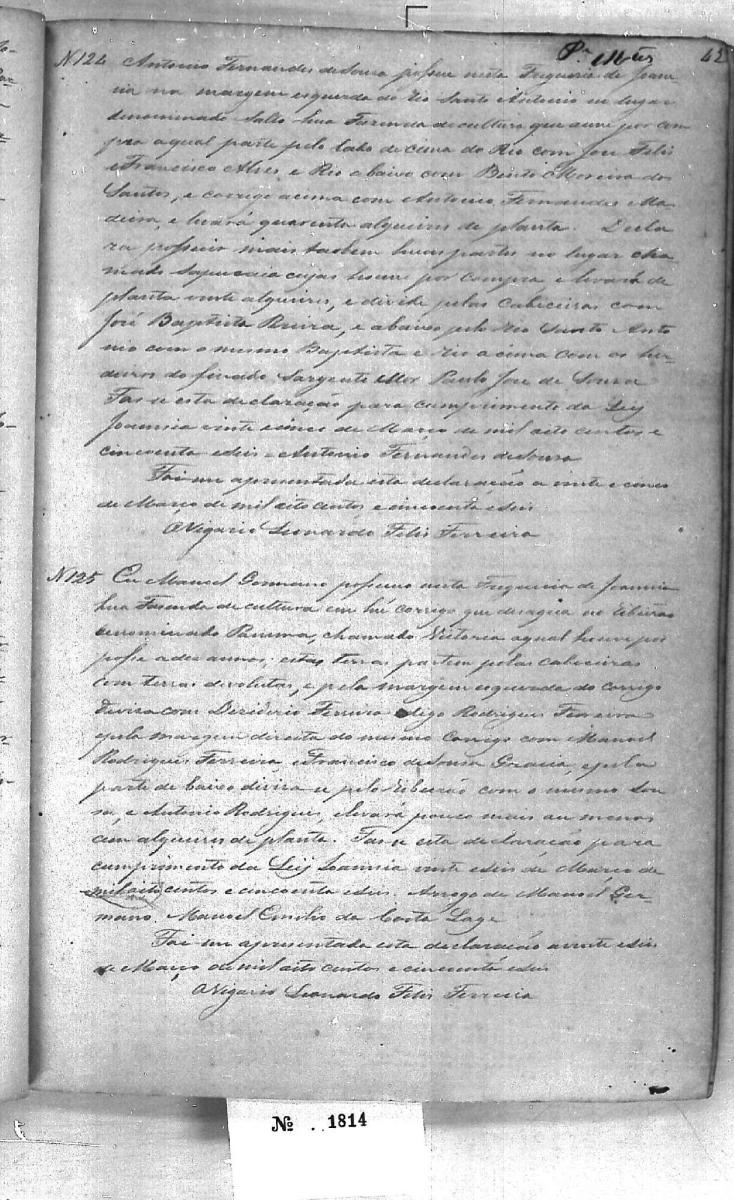 42
N 124 Antonio Fernandes de Sousa possue nesta Freguesia de Joane
sia na margem esquerda do Rio Santo Antonio no lugar
denominado Salto hua Fazenda de cultura que ouve por com
pra a qual parte pelo lado de cima do Rio com José Felis
e Francisco Alves, e Rio abaixo com Bento Moreira dos
Santos, e corrigo acima com Antonio Fernandes Ma
deira, e levará quarenta alqueires de planta. Decla
ra possuir mais tambem huas partes no lugar cha
mado Sapucaia cujas houve por compra e levará de
planta vinte alqueires, e divide pelas Cabiceiras com
José Baptista Vieira, e abaixo pelo Rio Santo Anto
nio com o mesmo Baptista e Rio acima com os her
deiros do finado Sargento Mor Paulo José de Sousa
Fas se esta declaração para cumprimento da Ley
Joannesia vinte e cinco de Março de mil oito centos e
cincoenta e seis = Antonio Fernandes de Sousa
Foi me apresentada esta declaração a vinte e cinco
de Março de mil oito centos e cincoenta e seis
O Vigario Leonardo Felis Ferreira
N 125 Eu Manoel Germano possuo nesta Freguesia de Joannesia
hua Fasenda de cultura em hu corrigo que desagua no Ribeirão
denominado Panema, chamado Victoria a qual houve por
posse a des annos: estas terras partem pelas cabiceiras
com terras devolutas, e pela margem esquerda do corrigo
devisa com Deziderio Ferreira digo Rodrigues Ferreira
e pela margem direita do mesmo Corrigo com Manoel
Rodrigues Ferreira e Francisco de Sousa Gracia, e pela
parte de baixo divisa se pelo Ribeirão com o mesmo Sou
sa, e Antonio Rodrigues, e levará pouco mais ou menos
cem alqueires de planta. Fas se esta declaração para
cumprimento da Ley Joannesia vinte e seis de Março de
mil oito centos e cincoenta e seis. Arrogo de Manoel Ger-
mano. Manoel Emilio da Costa Lage
Foi me apresentada esta declaração a vinte e seis
de Março de mil oito centos e cincoenta e seis
O Vigario Leonardo Felis Ferreira
No 1814